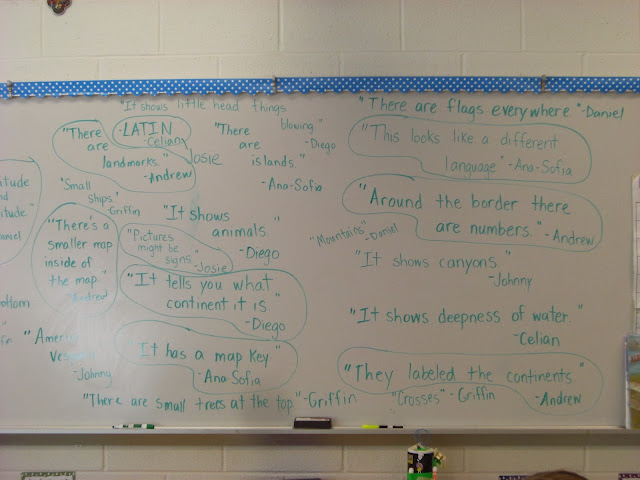 "It shows little head things
blowing." -Diego
"There are flags everywhere."-Daniel
"There
are
landmarks."
-Andrew
-LATIN
-Celian
Josie
"There
are
islands."
-Ana-Sofia
"This looks like a different
language" -Ana-Sofia
"Small
ships"
-Griffin
"It shows
animals."
-Diego
"Around the border there
are numbers." -Andrew
"Mountains" -Daniel
"There's a
smaller map
inside of
the map."
-Andrew
"Pictures
might be
signs."
-Josie
"It shows canyons."
-Johnny
"It tells you what
continent it is."
-Diego
"It shows deepness of water."
-Celian
"It has a map key"
-Ana-Sofia
-Johnny
"They labeled the continents."
-Andrew
"Crosses" -Griffin
"There are small trees at the top."-Griffin